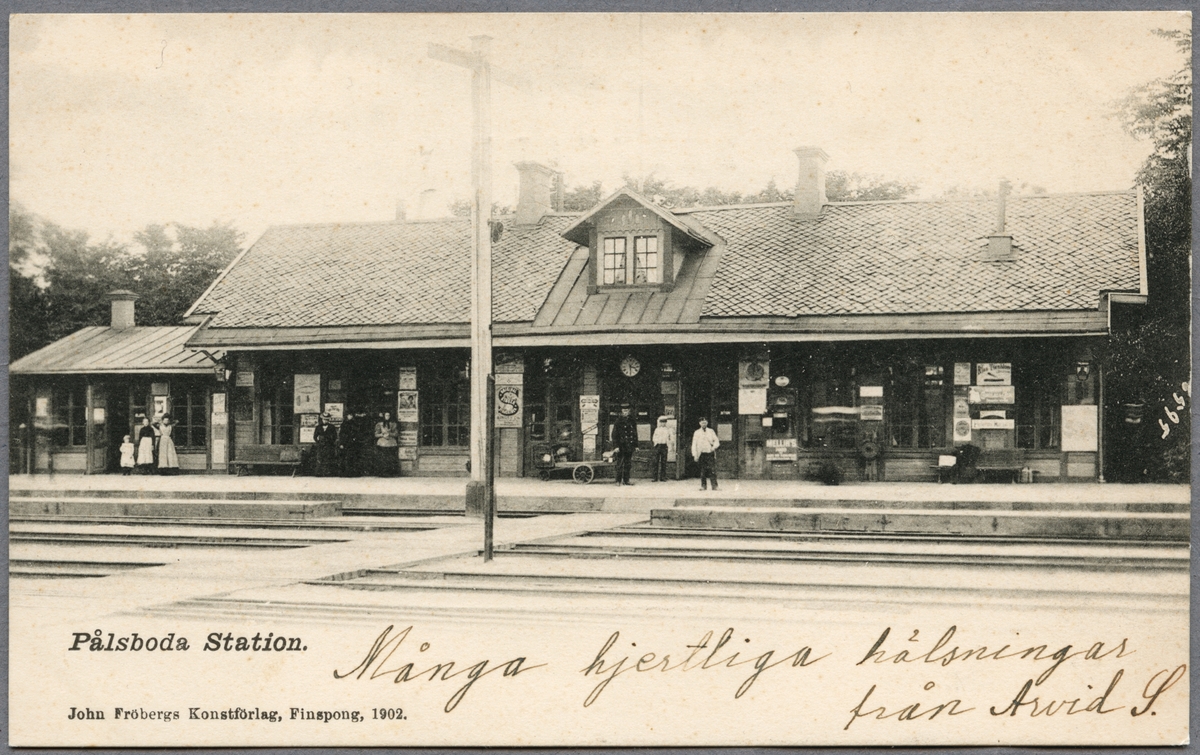 Pålsboda Station.
Många hjertliga hälsningar
från Arvid S.
John Fröbergs Konstförlag, Finspong, 1902.